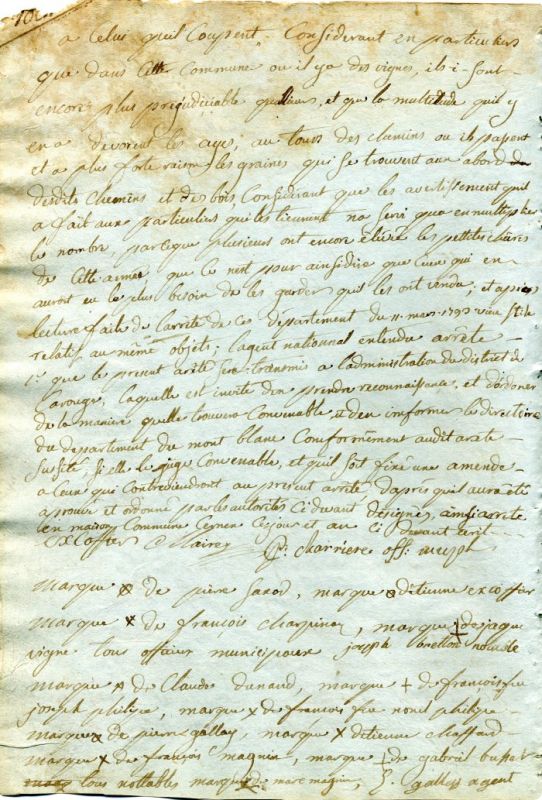 a Celui quil Coupent Considerant en particuliers
que dans Cette Commune ou il ya des vignes, ils i sont
encorez plus prejudiciable quailleurs, et que la multitude quil y
en a devorent les ayes, au tours des chemins ou ils passent
et a plus forte raison les graines qui se trouvent aux abord du
desdits chemins et des bois, Considerant que les avertissement quil
a fait aux particuliers qui les tiennent na servi qua en multiplier
le nombre, parceque plusieurs ont encore élevé les pettites chevres
de Cette année que ce nest pour ainsi dire que Ceux qui en
auroit eu le plus besoin de les garder qui les ont vendu, et apres
lecture faite de larrété de ces département du 11 mars 1793 vieu Stile
relatif au même objets; lagent nationnal entendu arrête
1.° que le present arrêté sera transmis a ladministration du district de
Carouge, laquelle est invité den prendre reconnaissance, et dordoner
de la maniere quelle trouvera Convenable, et den informer le directoire
du departtement du mont blanc Conformément audit arrete
Susdté, Si elle le juge Convenable, et quil soit fixé une amende
a Ceux qui Contreviendront au present arrêté dapres quil aura été
aprouvé et ordonné par les autorités Ci devant désignés, ainsi arrété
en maison Commune Cernex Ce jour et an Ci devant écrit
Excoffier Maire
Charriere off. mup
marque de pierre Saxod, marque detienne excoffier
marque x de françois Charpinaz, marque de jaque
vigne tous officiers municipaux joseph notable
marque de Claude Dunand, marque + de françois feu
joseph philipe, marque x de francois feu noel philipe
marque de pierre gallay, marque x detienne Chaffard
marque x de françois magnin, marque de gabriel bussat
tous nottables marque de marc magnin, J. Gallay agent